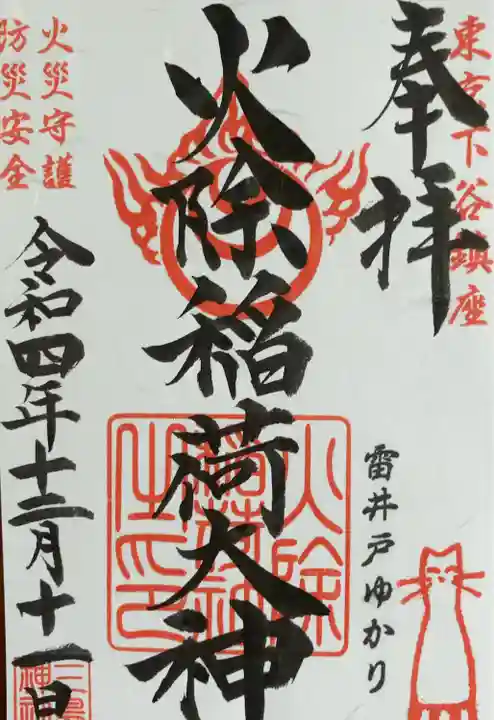 東京下谷鎮座
奉拝
雷井戸ゆかり
火除稲荷大神
火除
令和四年十二月十一日
火災守護
防災安全